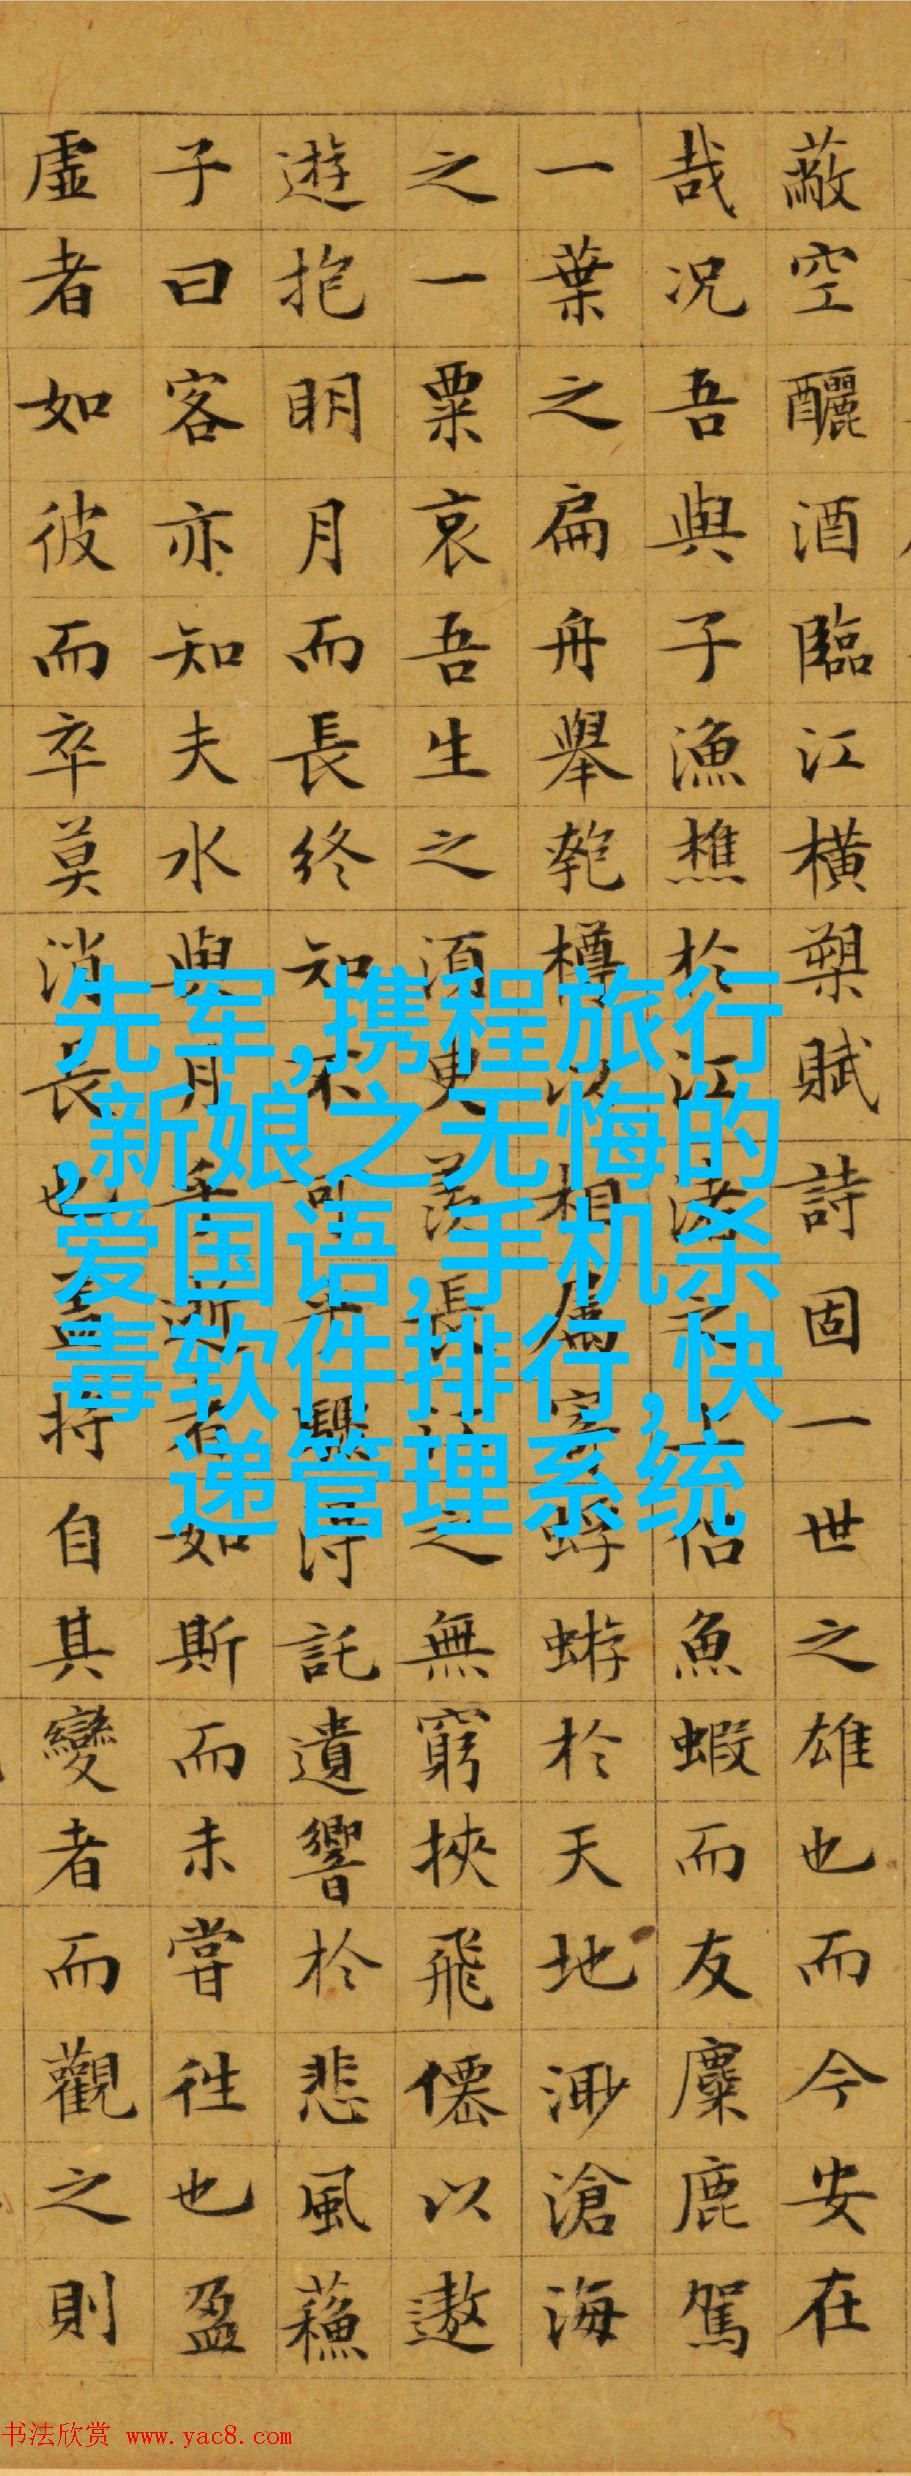 蔽空釃酒臨江橫槊賦詩固一世之雄也而今安在
哉况吾與子漁樵於江渚之上侶魚蝦而友麋鹿駕
一葉之扁舟舉匏樽以相屬寄蜉蝣於天地渺滄海
之一粟哀吾生之須臾羨長江之無窮挾飛僊以遨
遊抱明月而長終知不可乎驟得託遺響於悲風蘓
子曰客亦知夫水與月乎逝者如斯而未嘗往也盈
虛者如彼而卒莫消長也蓋將自其變者而觀之則
先军,携程旅行
,新娘之无悔的
爱国语,手机杀
毒软件排行,快
递管理系统
书法欣赏 www.yac8.com